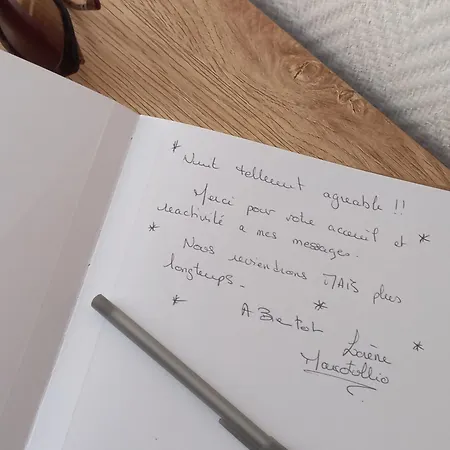 * Nuit tellement agreable !!
Merci pour votre acceuil et
reactivité a mes messages. *
* Nous reviendrons MAIS plus
longtemps. *
* A Bientot *
Lorène